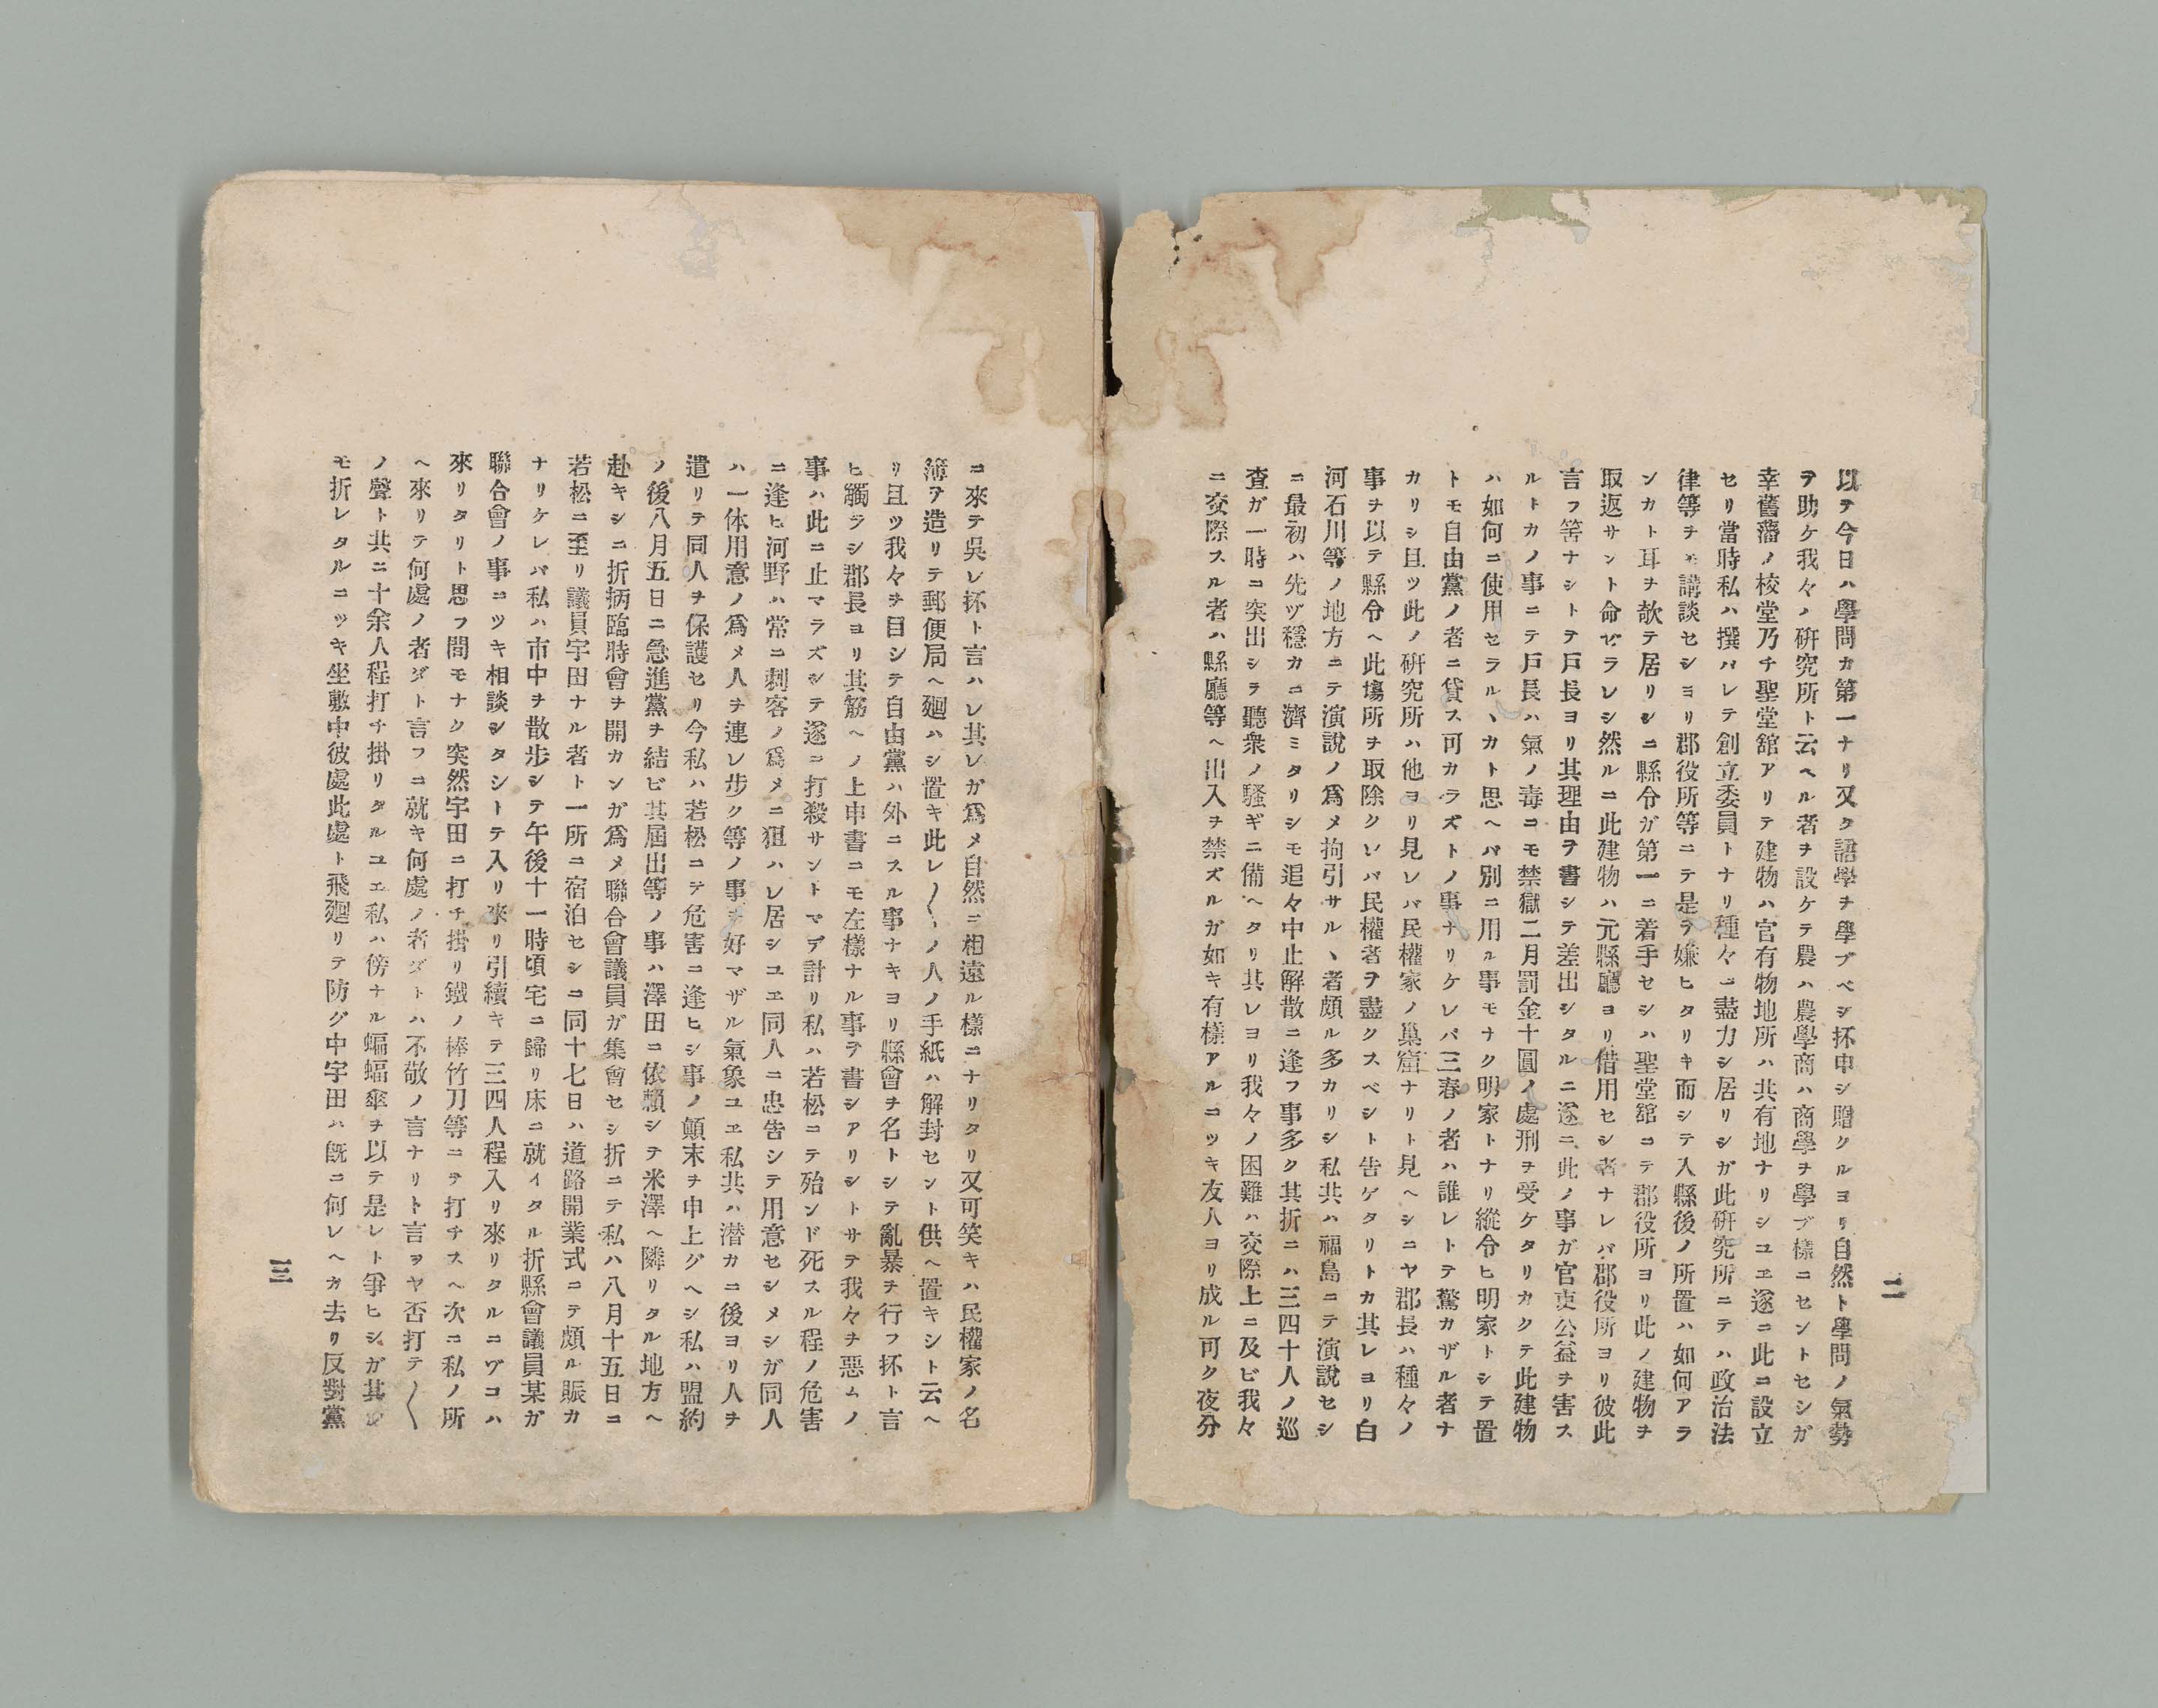 二
以テ今日ハ學問カ第一ナリ又ク語學チ學ブベシ抔申シ贈クルヨリ自然ト學問ノ氣勢
ヲ助ケ我々ノ硏究所ト云ヘル者ヲ設ケテ農ハ農學商ハ商學ヲ學ブ樣ニセントセシガ
幸舊藩ノ校堂乃チ聖堂舘アリテ建物ハ官有物地所ハ共有地ナリシユヱ遂ニ此ニ設立
セリ當時私ハ撰バレテ創立委員トナリ種々ニ盡力シ居リシガ此硏究所ニテハ政治法
律等チモ講談セシヨリ郡役所等ニテ是ヲ嫌ヒタリキ而シテ入縣後ノ所置ハ如何アラ
ンカト耳ヲ欹テ居リシニ縣令ガ第一ニ着手セシハ聖堂舘ニテ郡役所ヨリ此ノ建物ヲ
取返サント命ゼラレシ然ルニ此建物ハ元縣廳ヨリ借用セシ者ナレバ郡役所ヨリ彼此
言フ筈ナシトテ戸長ヨリ其理由ヲ書シテ差出シタルニ遂ニ此ノ事ガ官吏公益チ害ス
ルトカノ事ニテ戸長ハ氣ノ毒ニモ禁獄二月罰金十圓ノ處刑ヲ受ケタリカクテ此建物
ハ如何ニ使用セラル丶カト思ヘバ別ニ用ル事モナク明家トナリ縱令ヒ明家トシテ置
トモ自由黨ノ者ニ貸ス可カラズトノ事ナリケレバ三春ノ者ハ誰レトテ驚カザル者ナ
カリシ且ツ此ノ硏究所ハ他ヨリ見レバ民權家ノ巢窟ナリト見ヘシニヤ郡長ハ種々ノ
事ヲ以テ縣令ヘ此塲所ヲ取除クレバ民權者ヲ盡クスベシト告ゲタリトカ其レヨリ白
河石川等ノ地方ニテ演說ノ爲メ拘引サル丶者頗ル多カリシ私共ハ福島ニテ演說セシ
ニ最初ハ先ヅ穩カニ濟ミタリシモ追々中止解散ニ逢フ事多ク其折ニハ三四十人ノ巡
査ガ一時ニ突出シテ聽衆ノ騷ギニ備ヘタリ其レヨリ我々ノ困難ハ交際上ニ及ビ我々
ニ交際スル者ハ縣廳等ヘ出入ヲ禁ズルガ如キ有樣アルニツキ友人ヨリ成ル可ク夜分
ニ來テ吳レ抔ト言ハレ其レガ爲メ自然ニ相遠ル樣ニナリタリ又可笑キハ民權家ノ名
簿ヲ造リテ郵便局ヘ廻ハシ置キ此レ〱ノ人ノ手紙ハ解封セント供ヘ置キシト云ヘ
リ且ツ我々ヲ目シテ自由黨ハ外ニスル事ナキヨリ縣會ヲ名トシテ亂暴チ行フ抔ト言
ヒ觸ラシ郡長ヨリ其筋ヘノ上申書ニモ左樣ナル事ヲ書シアリシトサテ我々チ惡ムノ
事ハ此ニ止マラズシテ遂ニ打殺サントマデ計リ私ハ若松ニテ殆ンド死スル程ノ危害
ニ逢ヒ河野ハ常ニ刺客ノ爲メニ狙ハレ居シユヱ同人ニ忠告シテ用意セシメシガ同人
ハ一体用意ノ爲メ人ヲ連レ步ク等ノ事ヲ好マザル氣象ユヱ私共ハ潜カニ後ヨリ人ヲ
遣リテ同人ヲ保護セリ今私ハ若松ニテ危害ニ逢ヒシ事ノ顚末ヲ申上グヘシ私ハ盟約
ノ後八月五日ニ急進黨ヲ結ビ其屆出等ノ事ハ澤田ニ依賴シテ米澤ヘ隣リタル地方ヘ
赴キシニ折柄臨時會ヲ開カンガ爲メ聯合會議員ガ集會セシ折ニテ私ハ八月十五日ニ
若松ニ至リ議員宇田ナル者ト一所ニ宿泊セシニ同十七日ハ道路開業式ニテ頗ル賑カ
ナリケレバ私ハ市中ヲ散步シテ午後十一時頃宅ニ歸リ床ニ就イタル折縣會議員某ガ
聯合會ノ事ニツキ相談シタシトテ入リ來リ引續キテ三四人程入リ來リタルニヅコハ
來リタリト思フ間モナク突然宇田ニ打チ掛リ鐵ノ棒竹刀等ニテ打チスヘ次ニ私ノ所
ヘ來リテ何處ノ者ダト言フニ就キ何處ノ者ダトハ不敬ノ言ナリト言ヲヤ否打テ〱
ノ聲ト共ニ十余人程打チ掛リタルユヱ私ハ傍ナル蝙蝠傘ヲ以テ是レト爭ヒシガ其
モ折レタルニツキ坐敷中彼處此處ト飛廻リテ防グ中宇田ハ旣ニ何レヘカ去リ反對黨
三